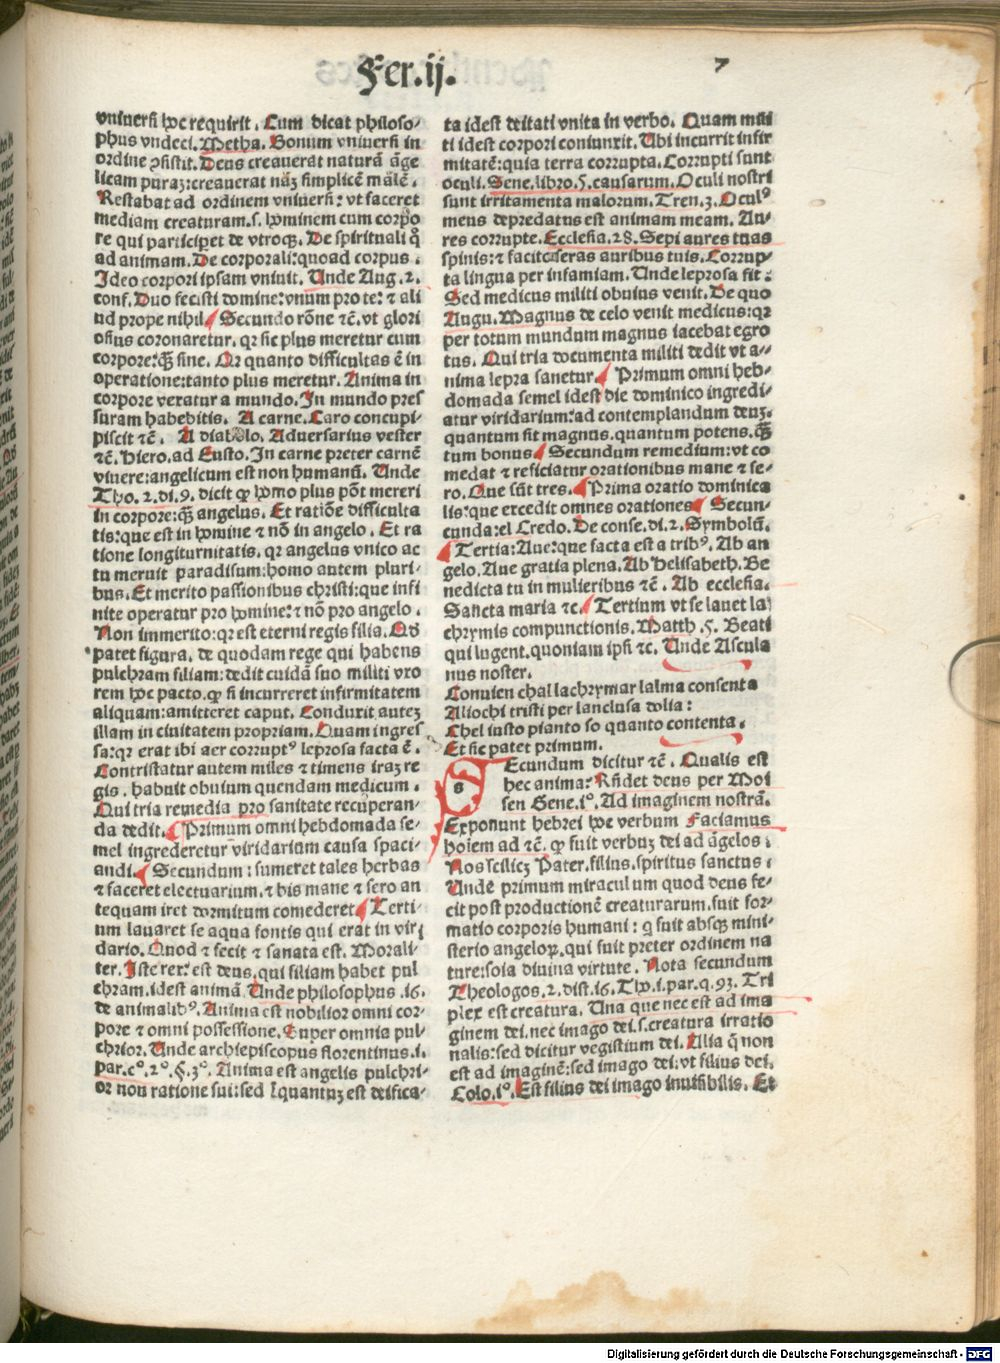 Fer.ij.
7
vniuersi hoc requirit. Cum dicat philoso-
phus vndeci. Metha. Bonum vniuersi in
ordine ꝯsistit. Deus creauerat naturā āge
licam puraz: creauerat nāz simplicē mālē.
Restabat ad ordinem vniuersi: vt faceret
mediam creaturam. s. hominem cum corpo
re qui participet de vtroqꝫ. De spirituali q̊
ad animam. De corporali: quoad corpus.
Ideo corpori ipsam vniuit. Unde Aug. 2.
conf. Duo fecisti domine: vnum pro te: ⁊ ali
ud prope nihil. Secundo rōne ⁊c. vt glori
osius coronaretur. qꝛ sic plus meretur cum
corpore: qꝫ̄ sine. Qꝛ quanto difficultas ē in
operatione: tanto plus meretur. Anima in
corpore vexatur a mundo. In mundo pres
suram habebitis. A carne. Caro concupi-
piscit ⁊c. A diabolo. Aduersarius vester
⁊c. Hiero. ad Eusto. In carne preter carnē
viuere: angelicum est non humanū. Unde
Tho. 2. di. 9. dicit ꝙ homo plus pōt mereri
in corpore: qꝫ̄ angelus. Et ratiōe difficulta
tis: que est in homine ⁊ nō in angelo. Et ra
tione longiturnitatis. qꝛ angelus vnico ac
tu meruit paradisum: homo autem pluri-
bus. Et merito passionibus christi: que infi
nite operatur pro homine: ⁊ nō pro angelo.
Non immerito: qꝛ est eterni regis filia. Qd̓
patet figura. de quodam rege qui habens
pulchram filiam: dedit cuidā suo militi vxo
rem hoc pacto. ꝙ si incurreret infirmitatem
aliquam: amitteret caput. Conduxit autez
illam in ciuitatem propriam. Quam ingres
sa: qꝛ erat ibi aer corrupt⁹ leprosa facta ē.
Contristatur autem miles ⁊ timens iraz re
gis. habuit obuium quendam medicum.
Qui tria remedia pro sanitate recuperan-
da dedit. Primum omni hebdomada se-
mel ingrederetur viridarium causa spaci-
andi. Secundum: sumeret tales herbas
⁊ faceret electuarium. ⁊ bis mane ⁊ sero an
tequam iret dormitum comederet. Terti-
um lauaret se aqua fontis qui erat in viri
dario. Quod ⁊ fecit ⁊ sanata est. Morali-
ter. Iste rex: est deus. qui filiam habet pul
chram. idest animā Unde philosophus. 16.
de animalib⁹. Anima est nobilior omni cor-
pore ⁊ omni possessione. Super omnia pul-
chrior. Unde archiepiscopus florentinus. i.
par. c°. 2°. §. 3°. Anima est angelis pulchri-
or non ratione sui: sed Iquantuz est deifica-
ta idest deitati vnita in verbo. Quam mili
ti idest corpori coniunxit. Ubi incurrit infir
mitatē: quia terra corrupta. Corrupti sunt
oculi. Sene. libro. 5. causarum. Oculi nostri
sunt irritamenta malorum. Tren. 3. Ocul⁹
meus depredatus est animam meam. Au-
res corrupte. Ecclesia. 28. Sepi aures tuas
spinis: ⁊ facito seras auribus tuis. Corrup-
ta lingua per infamiam. Unde leprosa fit:
Sed medicus militi obuius venit. De quo
Augu. Magnus de celo venit medicus: qꝛ
per totum mundum magnus iacebat egro
tus. Qui tria documenta militi dedit vt a-
nima lepra sanetur. Primum omni heb-
domada semel idest die dominico ingredi-
atur viridarium: ad contemplandum deuz.
quantum sit magnus. quantum potens. qꝫ̄
tum bonus. Secundum remedium: vt co
medat ⁊ reficiatur orationibus mane ⁊ se-
ro. Que sūt tres. Prima oratio dominica
lis: que excedit omnes orationes. Secun-
cunda: el Credo. De conse. di. 2. Symbolū.
Tertia: Aue: que facta est a trib⁹. Ab an
gelo. Aue gratia plena. Ab Helisabeth. Be
nedicta tu in mulieribus ⁊c. Ab ecclesia.
Sancta maria ⁊c. Tertium vt se lauet la
chrymis compunctionis. Matth. 5. Beati
qui lugent. quoniam ipsi ⁊c. Unde Ascula
nus noster.
Conuien chal lachrymar lalma consenta
Aliochi tristi per lanclusa dolia:
Chel iusto pianto so quanto contenta.
Et sic patet primum.
Secundum dicitur ⁊c. Qualis est
hec anima? Rn̄det deus per Moi
sen Gene. i°. Ad imaginem nostrā.
Exponunt hebrei hoc verbum Faciamus
hoiem ad ⁊c. ꝙ fuit verbuz dei ad āgelos:
Nos scilicz Pater. filius. spiritus sanctus.
Unde primum miraculum quod deus fe-
cit post productionē creaturarum. fuit for-
matio corporis humani: q̄ fuit absqꝫ mini-
sterio angeloꝝ. qui fuit preter ordinem na
ture: sola diuina virtute. Nota secundum
Theologos. 2. dist. 16. Tho. i. par. q. 93. Tri
plex est creatura. Una que nec est ad ima
ginem dei. nec imago dei. s. creatura irratio
nalis: sed dicitur vegistium dei. Alia q̄ non
est ad imaginē: sed imago dei: vt filius dei.
Colo. i°. Est filius dei imago inuisibilis. Et
Digitalisierung gefördert durch die Deutsche Forschungsgemeinschaft - DFG